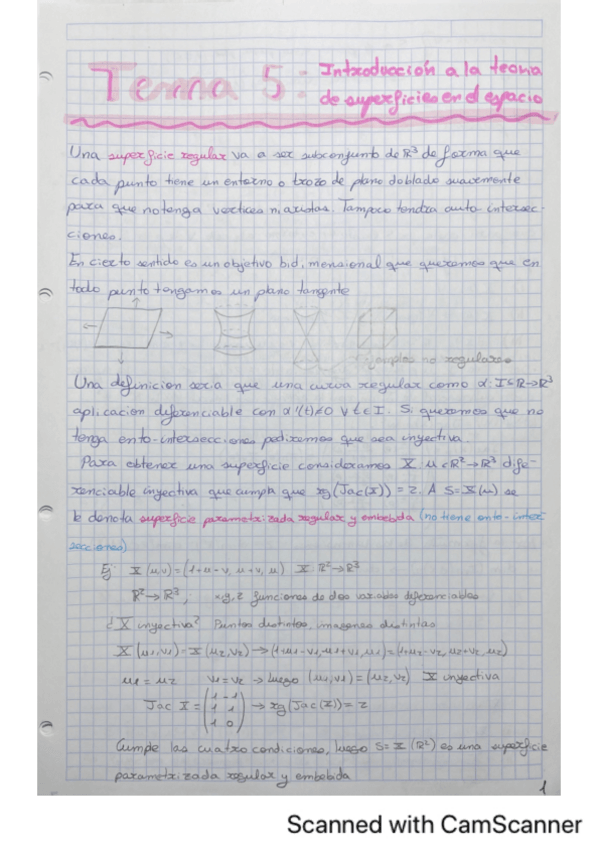 Tema 5: Introducción a la teoria
de superficies en el espacio
Una superficie regular va a ser subconjunto de R³ de forma que
cada punto tiene un entorno o trozo de plano doblado suavemente
para que no tenga vertices ni aristas. Tampoco tendra auto-intersec-
ciones.
En cierto sentido es un objetivo bidimensional que queremos que en
todo punto tengamos un plano tangente
Ejemplos no regulares
Una definicion seria que una curva regular como α: I⊂R→R³
aplicacion diferenciable con α'(t)≠0 ∀ t∈I. Si queremos que no
tenga auto-intersecciones pediremos que sea inyectiva.
Para obtener una superficie consideramos X: u⊂R²→R³ dife-
renciable inyectiva que cumpla que rg(Jac(X))=2. A S=X(u) se
le denota superficie parametrizada regular y embebida (no tiene auto-inter
secciones)
Ej X(u,v)=(1+u-v, u+v, u) X: R²→R³
R²→R³, x,y,z funciones de dos variables diferenciables
¿X inyectiva? Puntos distintos, imagenes distintas
X(u1,v1)=X(u2,v2)→(1+u1-v1,u1+v1,u1)=(1+u2-v2,u2+v2,u2)
u1=u2 v1=v2 → luego (u1,v1)=(u2,v2) X inyectiva
Jac X = (1 -1
1 1
1 0) → rg(Jac(X))=2
Cumple las cuatro condiciones, luego S=X(R²) es una superficie
parametrizada regular y embebida
1
Scanned with CamScanner